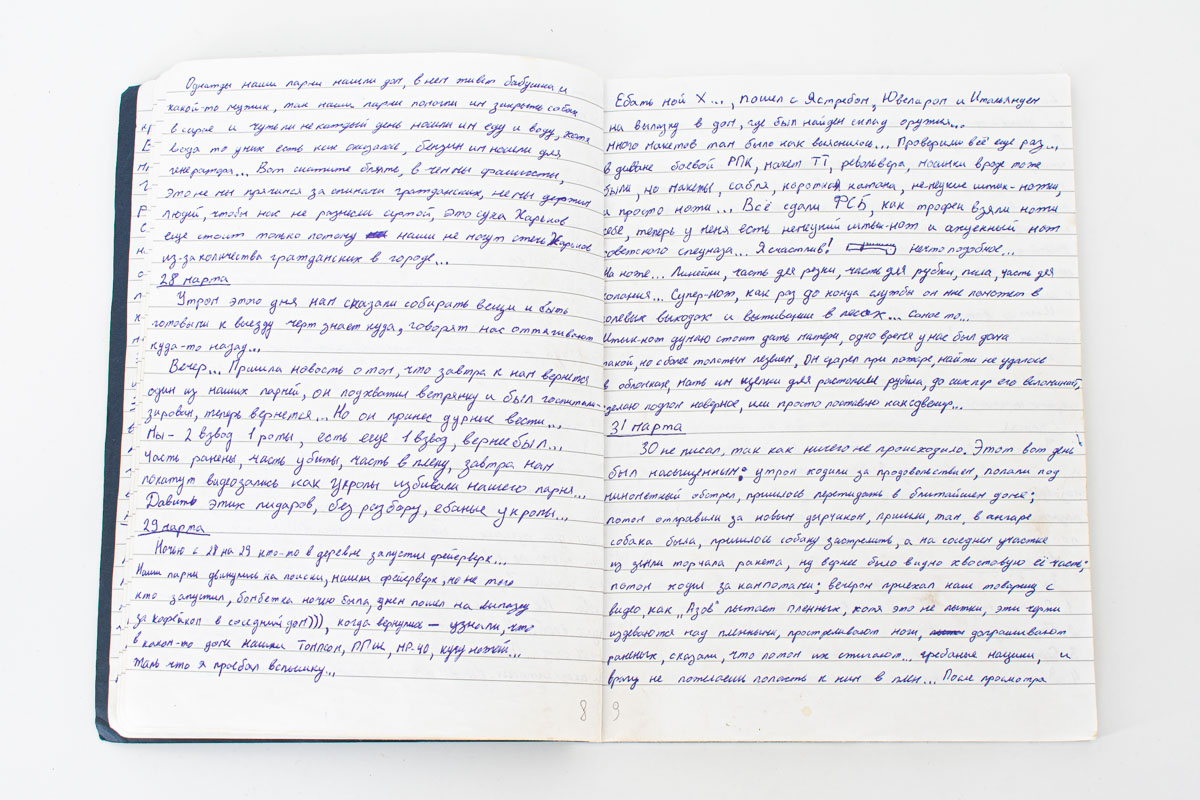 Однажды наши парни нашли дом, в нем живёт бабушка и
какой-то мужик, так наши парни помогли им закрыть собак
в сарае и чуть ли не каждый день носили им еду и воду, хотя
вода то у них есть как оказалось, бензин им носили для
генератора... Вот скажите блять, в чем мы фашисты,
Это не мы прячимся за спинами гражданских, не мы держим
людей, чтобы нас не разнесли артой, это сука Харьков
еще стоит только потому наши не могут стечь Харьков
из-за количества гражданских в городе...
28 марта
Утром этого дня нам сказали собирать вещи и быть
готовыми к выезду черт знает куда, говорят нас оттягивают
куда-то назад...
Вечер... Пришла новость о том, что завтра к нам вернется
один из наших парней, он подхватил ветрянку и был госпитали-
зирован, теперь вернется... Но он принес дурные вести...
Мы - 2 взвод 1 роты, есть еще 1 взвод, вернее был...
Часть ранены, часть убиты, часть в плену, завтра нам
покажут видеозапись как укропы избивали нашего парня...
Давить этих пидаров, без разбору, ебаные укропы...
29 марта
Ночью с 28 на 29 кто-то в деревне запустил фейерверк...
Наши парни двинулись на поиски, нашли фейерверк, но не того
кто запустил, бомбежка ночью была, днем пошел на вылазку
за кофейком в соседний дом))), когда вернулись — узнали, что
в каком-то доме нашли Томпсон, ППШ, МР-40, кучу ножей...
Жаль что я проебал вспышку...
8
Ебать мой Х..., пошел с Ястребом, Ювелиром и Итальянцем
на вылазку в дом, где был найден склад оружия...
много макетов там было как выяснилось... Проверили всё еще раз...
в диване боевой РПК, макет ТТ, револьвера, мосинки вроде тоже
были, но макеты, сабля, короткая катана, немецкие штык-ножи,
и просто ножи... Всё сдали ФСБ, как трофеи взяли ножи
себе, теперь у меня есть немецкий штык-нож и охуенный нож
советского спецназа... Я счастлив! нечто подобное...
на ноже... Линейки, часть для резки, часть для рубки, пила, часть для
копания... Супер-нож, как раз до конца службы он мне поможет в
полевых выходах и выживании в лесах... самое то...
Штык-нож думаю стоит дать матери, одно время у нас был дома
такой, но с более толстым лезвием, Он сгорел при пожаре, найти не удалось
в обломках, мать им щепки для растопки рубила, до сих пор его вспоминает,
сделаю подгон наверное, или просто поставлю как сувенир...
31 марта
30 не писал, так как ничего не происходило. Этот вот день
был насыщенным: утром ходили за продовольствием, попали под
минометный обстрел, пришлось пережидать в ближайшем доме;
потом отправили за новым дырчиком, пришли, там, в ангаре
собака была, пришлось собаку застрелить, а на соседнем участке
из земли торчала ракета, ну вернее было видно хвостовую её часть;
потом ходил за компотами; вечером приехал наш товарищ с
видео, как „Азов" пытает пленных, хотя это не пытки, эти черти
издеваются над пленными, простреливают ноги, допрашивают
раненых, сказали, что потом их сжигают... гребаные нацики, и
врагу не пожелаешь попасть к ним в плен... После просмотра
9